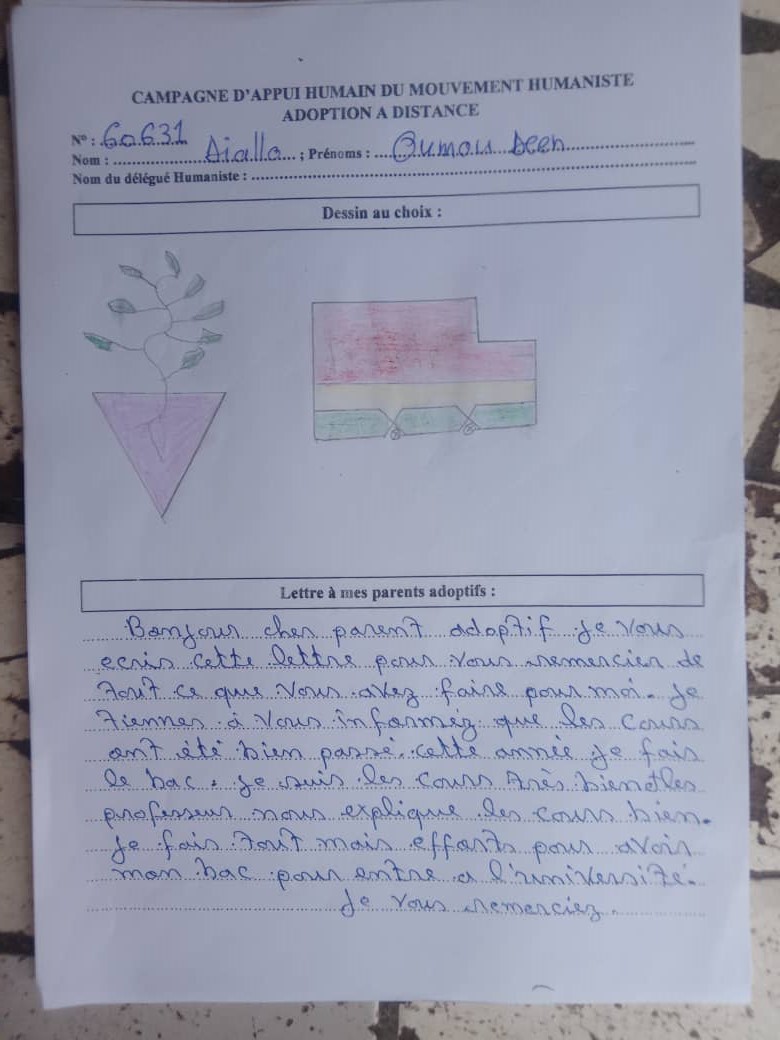 CAMPAGNE D'APPUI HUMAIN DU MOUVEMENT HUMANISTE
ADOPTION A DISTANCE
N° : 60631
Nom : Diallo ; Prénoms : Oumou Deen
Nom du délégué Humaniste :
Dessin au choix :
Lettre à mes parents adoptifs :
Bonjour cher parent adoptif je vous
ecris cette lettre pour vous remercier de
tout ce que vous avez faire pour moi. Je
tiennes à vous informéz que les cours
ont été bien passé. cette année je fais
le bac. je suis les cours très bien et les
professeur nous explique les cours bien.
Je fais tout mais efforts pour avoir
mon bac pour entre a l'université.
Je vous remerciez.